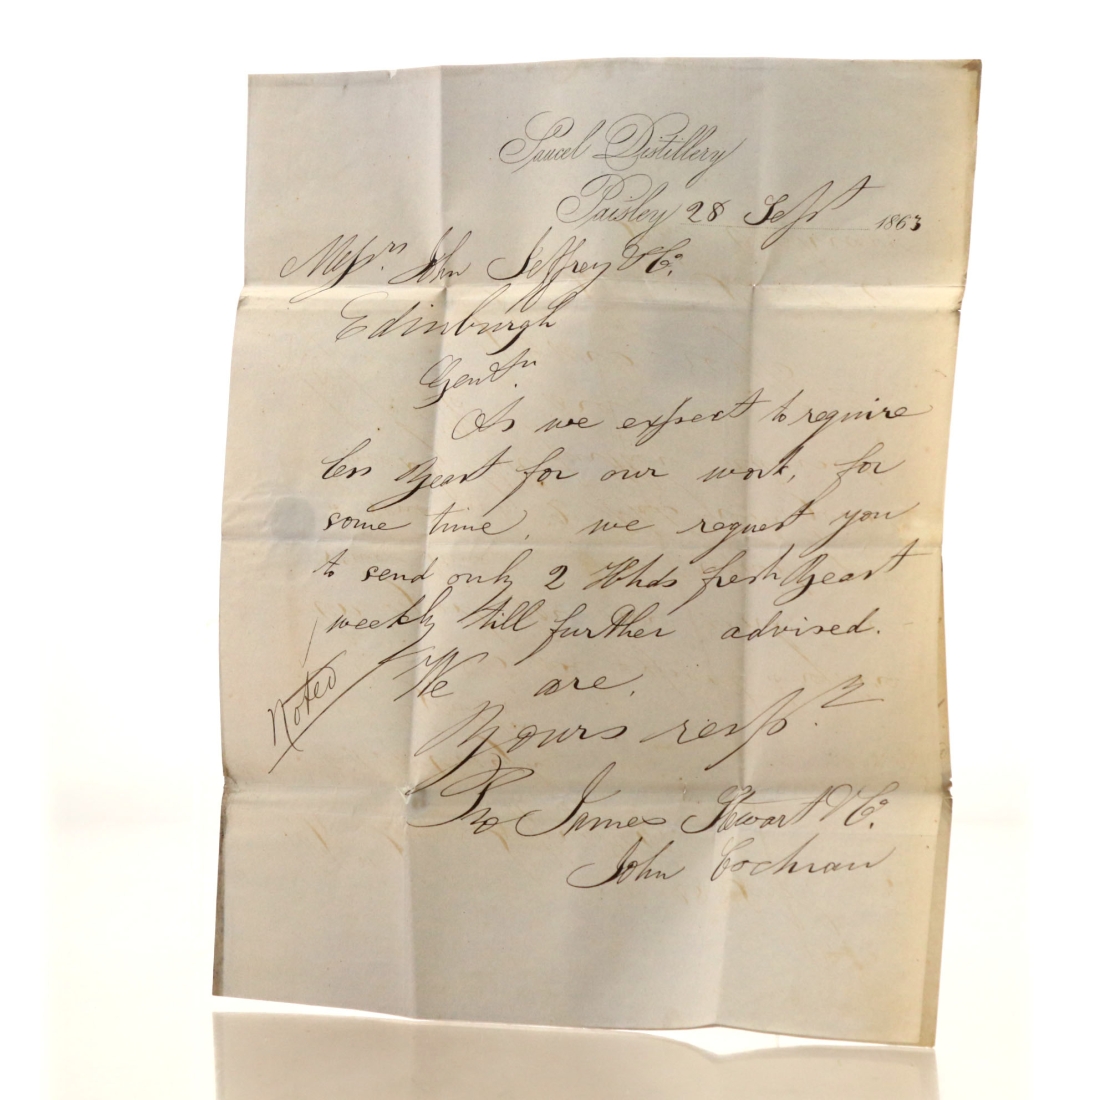 Saucel Distillery
Paisley 28 Sept 1863
Messrs. John Jeffrey & Co.
Edinburgh
Gentn.
As we expect to require
less Yeast for our work, for
some time, we request you
to send only 2 Hhds fresh Yeast
weekly till further advised.
We are,
Noted
Yours respy.
Pro James Stewart & Co.
John Cochran